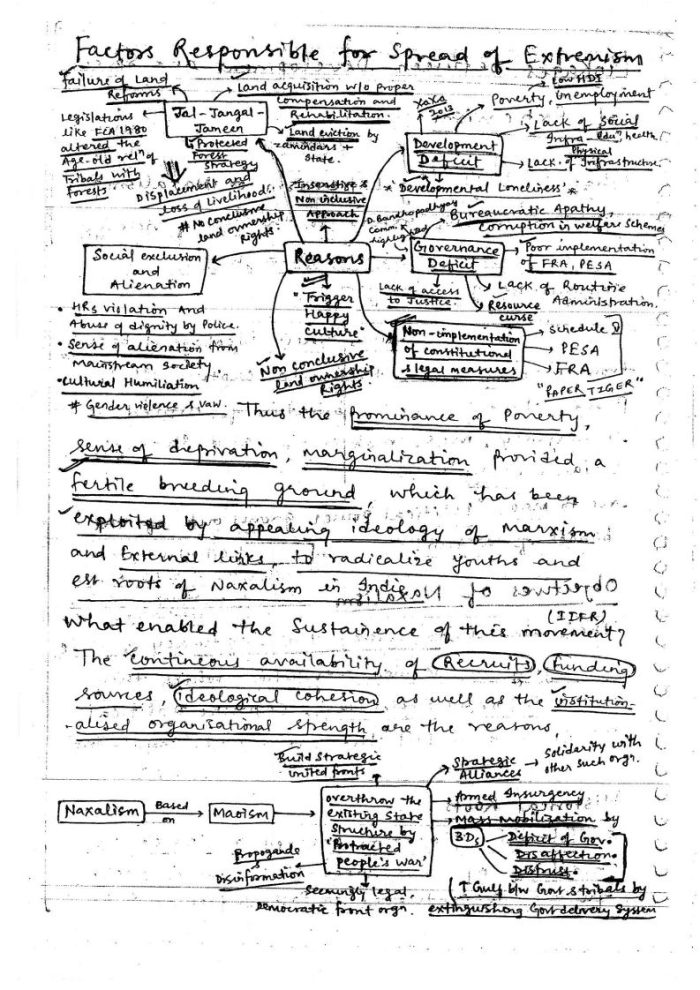 Factors Responsible for Spread of Extremism
Failure of Land
Reforms
Land acquisition w/o proper
compensation and
Rehabilitation.
Jal-Jangal-
Jameen
Legislations
like FCA 1980
altered the
Age-old reln of
Tribals with
Forests
Protected
Forest
Strategy
Land eviction by
zamindars +
State.
Displacement and
loss of Livelihoods.
# No conclusive
land ownership
Rights.
Insensitive &
Non inclusive
Approach
XaXa
2013
Low HDI
Poverty, Unemployment
Development
Deficit
Lack of Social
Infra - edun, health
Physical
Lack of Infrastructure
* 'Developmental Loneliness' *
D. Bandhopadhyay
Comm.
highlighted
Bureaucratic Apathy,
corruption in welfare schemes
Reasons
Governance
Deficit
Poor implementation
of FRA, PESA
Lack of Routine
Administration.
Resource
curse
Lack of access
to Justice.
Social exclusion
and
Alienation
• HRs violation And
Abuse of dignity by Police.
• Sense of alienation from
Mainstream society.
• Cultural Humiliation
# Gender violence & VAW.
"Trigger
Happy
Culture"
Non conclusive
land ownership
Rights.
Non-implementation
of constitutional
& legal measures
schedule
PESA
FRA
"PAPER TIGER"
Thus the prominance of Poverty,
sense of deprivation, marginalization provided a
fertile breeding ground, which has been
exploited by appealing ideology of marxism
and External links, to radicalize youths and
est roots of Naxalism in India
(IIFR)
What enabled the Sustainence of this movement?
The contineous availability of Recruits, funding
sources, ideological cohesion as well as the institution-
-alised organisational strength are the reasons,
Build Strategic
united fronts
Strategic
Alliances
Solidarity with
other such orgn.
Naxalism
Based
on
Maoism
overthrow the
existing State
structure by
'Protracted
people's war'
Armed Insurgency
Mass Mobilization by
3Ds
Deficit of Gov.
Disaffection.
Distrust.
Propoganda
Disinformation
seemingly legal,
Democratic front orgn.
(↑ Gulf b/w Govt & tribals by
extinguishing Govt delivery System